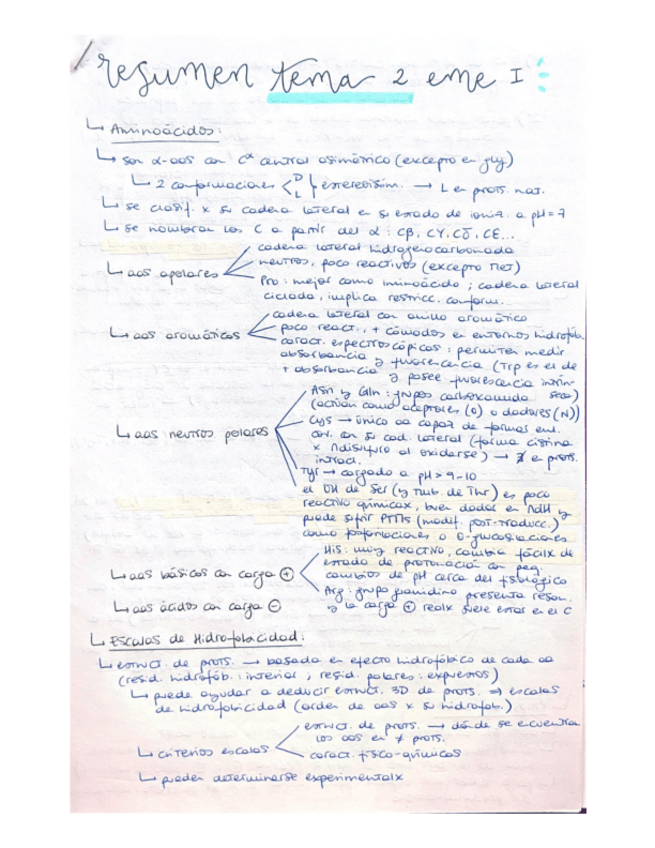 resumen tema 2 eme I
↳ Aminoácidos:
↳ son α-aas con Cα central asimétrico (excepto en gly)
↳ 2 conformaciones < D L } estereoisóm. → L en prots. nat.
↳ se clasif. x su cadena lateral en su estado de ioniz. a pH=7
↳ se nombran los C a partir del α: Cβ, Cγ, Cδ, Cε...
↳ aas apolares
cadena lateral hidrogenocarbonada
neutros, poco reactivos (excepto Met)
Pro: mejor como iminoácido; cadena lateral
ciclada, implica restricc. conform.
↳ aas aromáticos
cadena lateral con anillo aromático
poco react., + cómodos en entornos hidrofób.
caract. espectroscópicas: permiten medir
absorbancia y fluorescencia (Trp es el de
+ absorbancia y posee fluorescencia intrín-
seca)
↳ aas neutros polares
Asn y Gln: grupos carboxamido
(actúan como aceptores (O) o dadores (N))
Cys → único aa capaz de formar enl.
cov. en su cad. lateral (forma cistina
x Ndisulfuro al oxidarse) → ≠ en prots.
intracl.
Tyr → cargado a pH > 9-10
el OH de Ser (y tmb. de Thr) es poco
reactivo químicax, buen dador en NdH y
puede sufrir PTMs (modif. post-traducc.)
como fosforilaciones o O-glucosilaciones
↳ aas básicos con carga ⊕
His: muy reactivo, cambia fácilx de
estado de protonación con peq.
cambios de pH cerca del fisiológico
Arg: grupo guanidino presenta reson.
y la carga ⊕ realx suele estar en el C
↳ aas ácidos con carga ⊖
↳ Escalas de Hidrofobicidad:
↳ estruct. de prots. → basada en efecto hidrofóbico de cada aa
(resid. hidrofób.: interior, resid. polares: expuestos)
↳ puede ayudar a deducir estruct. 3D de prots. ⇒ escalas
de hidrofobicidad (orden de aas x su hidrofob.)
↳ criterios escalas
estruct. de prots. → dónde se encuentran
los aas en ≠ prots.
caract. físico-químicas
↳ pueden determinarse experimentalx